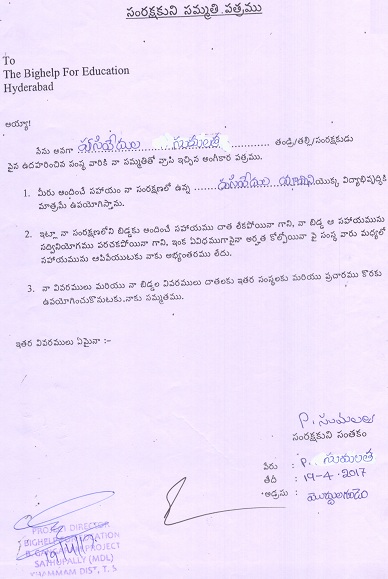 సంరక్షకుని సమ్మతి పత్రము
To
The Bighelp For Education
Hyderabad
అయ్యా!
నేను అనగా సుమలత తండ్రి/తల్లి/సంరక్షకుడు
పైన ఉదహరించిన సంస్థ వారికి నా సమ్మతితో వ్రాసి ఇచ్చిన అంగీకార పత్రము.
1. మీరు అందించే సహాయం నా సంరక్షణలో ఉన్న యొక్క విద్యాభివృద్ధికి
మాత్రమే ఉపయోగిస్తాము.
2. ఇట్లా నా సంరక్షణలోని బిడ్డకు అందించే సహాయము దాత లేకపోయినా గాని, నా బిడ్డ ఆ సహాయమును
సద్వినియోగము పరచకపోయినా గాని, ఇంక ఏవిధముగానైనా అర్హత కోల్పోయినా పై సంస్థ వారు మధ్యలో
సహాయమును ఆపివేయుటకు నాకు అభ్యంతరము లేదు.
3. నా వివరములు మరియు నా బిడ్డల వివరములు దాతలకు ఇతర సంస్థలకు మరియు ప్రచారము కొరకు
ఉపయోగించుకొనుటకు నాకు సమ్మతము.
ఇతర వివరములు ఏమైనా :-
P. సుమలత
సంరక్షకుని సంతకం
పేరు : P. సుమలత
తేది : 19-4-2017
అడ్రసు :
PROJECT DIRECTOR
BIGHELP EDUCATION
PROJECT
SATHUPALLY (MDL)
KHAMMAM DIST, T. S